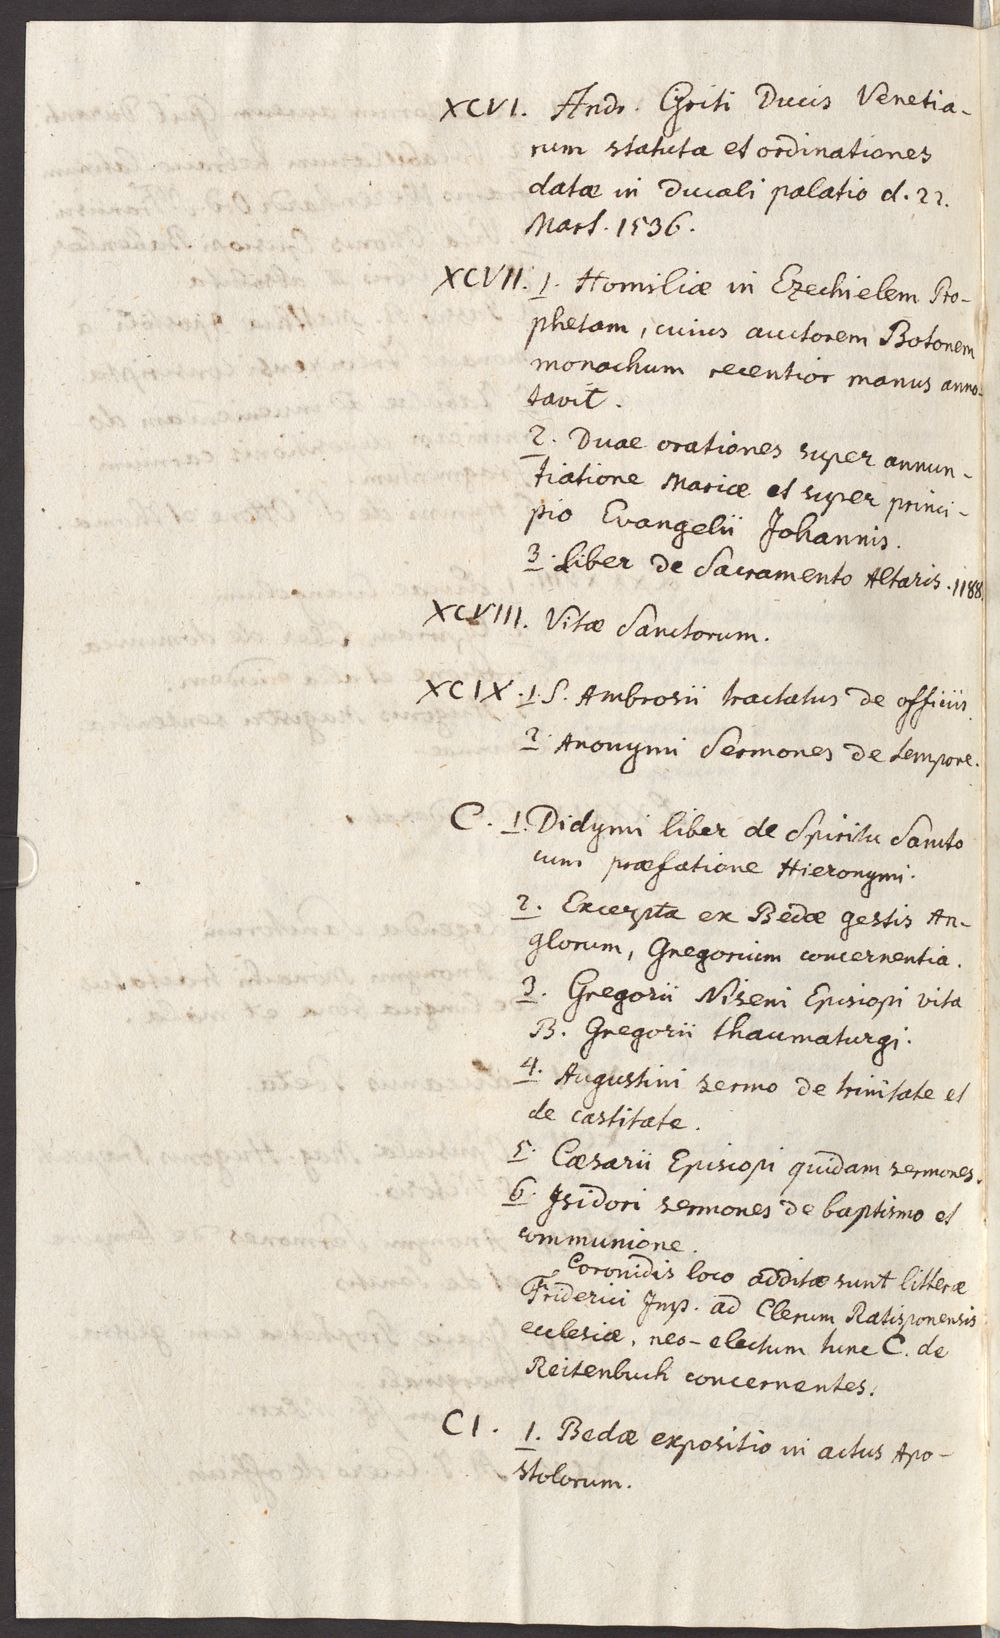 XCVI. Andr. Griti Ducis Venetia-
rum statuta et ordinationes
datæ in Ducali palatio d. 22.
Mart. 1536.
XCVII. 1. Homiliæ in Ezechielem Pro-
phetam, cuius auctorem Botonem
monachum recentior manus anno-
tavit.
2. Duae orationes super annun-
tiatione Mariæ et super princi-
pio Evangelii Johannis.
3. Liber de Sacramento Altaris. 1188.
XCVIII. Vitæ Sanctorum.
XCIX. 1. S. Ambrosii tractatus de officiis.
2. Anonymi Sermones de tempore.
C. 1. Didymi liber de Spiritu Sancto
cum præfatione Hieronymi.
2. Excerpta ex Bedæ gestis An-
glorum, Gregorium concernentia.
3. Gregorii Niseni Episcopi vita
B. Gregorii thaumaturgi.
4. Augustini sermo de trinitate et
de castitate.
5. Cæsarii Episcopi quidam sermones.
6. Isidori sermones de baptismo et
communione.
Coronidis loco additæ sunt litteræ
Friderici Imp. ad Clerum Ratisponensis
ecclesiæ, neo-electum tunc C. de
Reitenbuch concernentes.
CI. 1. Bedæ expositio in actus Apo-
stolorum.